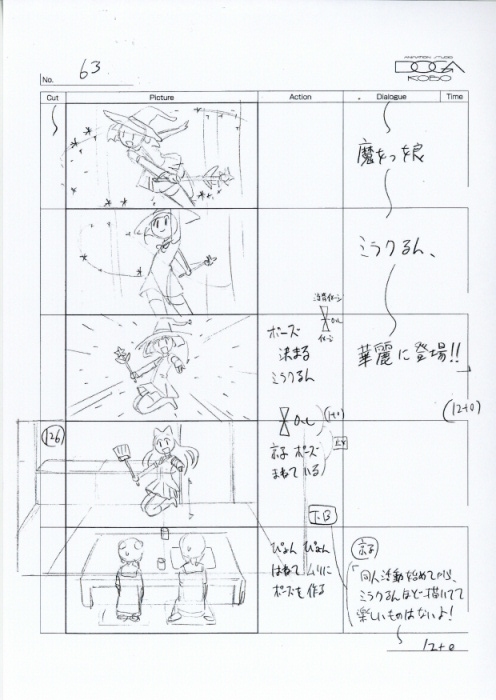 No. 63
ANIMATION STUDIO
DOGA
KOBO
Cut
Picture
Action
Dialogue
Time
魔女っ娘
ミラクるん、
O.L
ポーズ
決まる
ミラクるん
華麗に登場!!
(12+0)
126
O.L
(1+0)
京子 ポーズ
まねている
T.B
ぴょん ぴょん
はねて ムリに
ポーズを作る
京子
「同人活動始めてから、
ミラクるんほど描いてて
楽しいものはないよ!
12+0